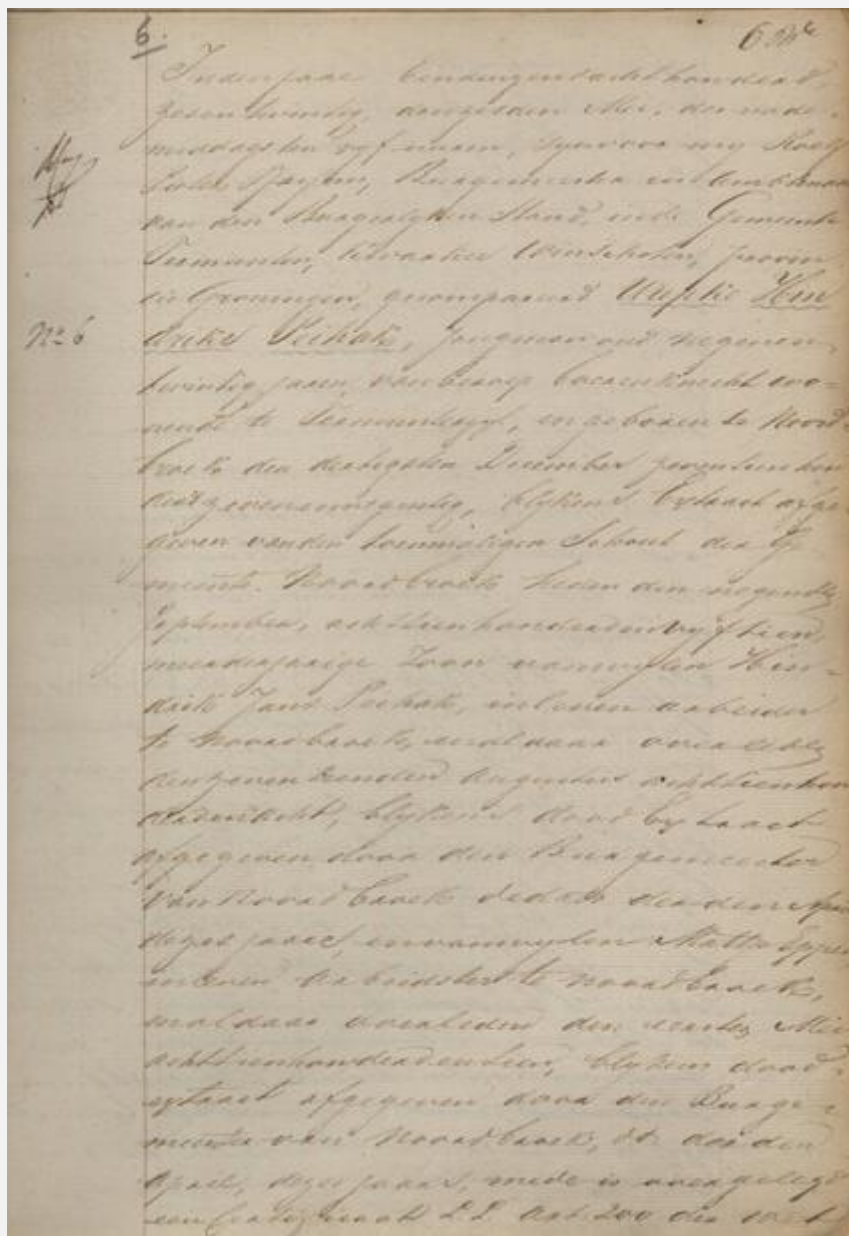 6.
In den jaare eenduizendachthonderd
zesentwintig, den Mei, des nade-
middags ten vyf uuren, zyn voor my
Pieter, Burgemeester en Ambtenaar
van den Burgerlyken Stand, in de Gemeente
Termunten, Kwartier Winschoten, provin
cie Groningen, gecompareerd Hen
No 6
driks Peihak, jongman oud negenen
twintig jaaren, van beroep boerenknecht wo=
nende te Termunterzyl, en geboren te Noord-
broek den dertigsten December zeventienhon
derdzevenennegentig, blykens Extract afge
geven van den toenmaligen Schout der Ge
meente Noordbroek heden den negenden
September, achttienhonderdenvyftien,
meerderjarige Zoon van wylen Hen-
drik Jans Peihak, in leven arbeider
te Noordbroek, en aldaar overleden
den zeventienden Augustus achttienhon
derdenacht, blykens dood extract
afgegeven door den Burgemeester
van Noordbroek de dato derden April
dezes jaars, en van wylen Eppes
in leven arbeidster te Noordbroek,
en aldaar overleden den eersten Mei
achttienhonderdentien, blykens dood-
extract afgegeven door den Burge-
meester van Noordbroek, dd. derden
April, dezes jaars, mede is overgelegd
een Certificaat Art. 200 der wet